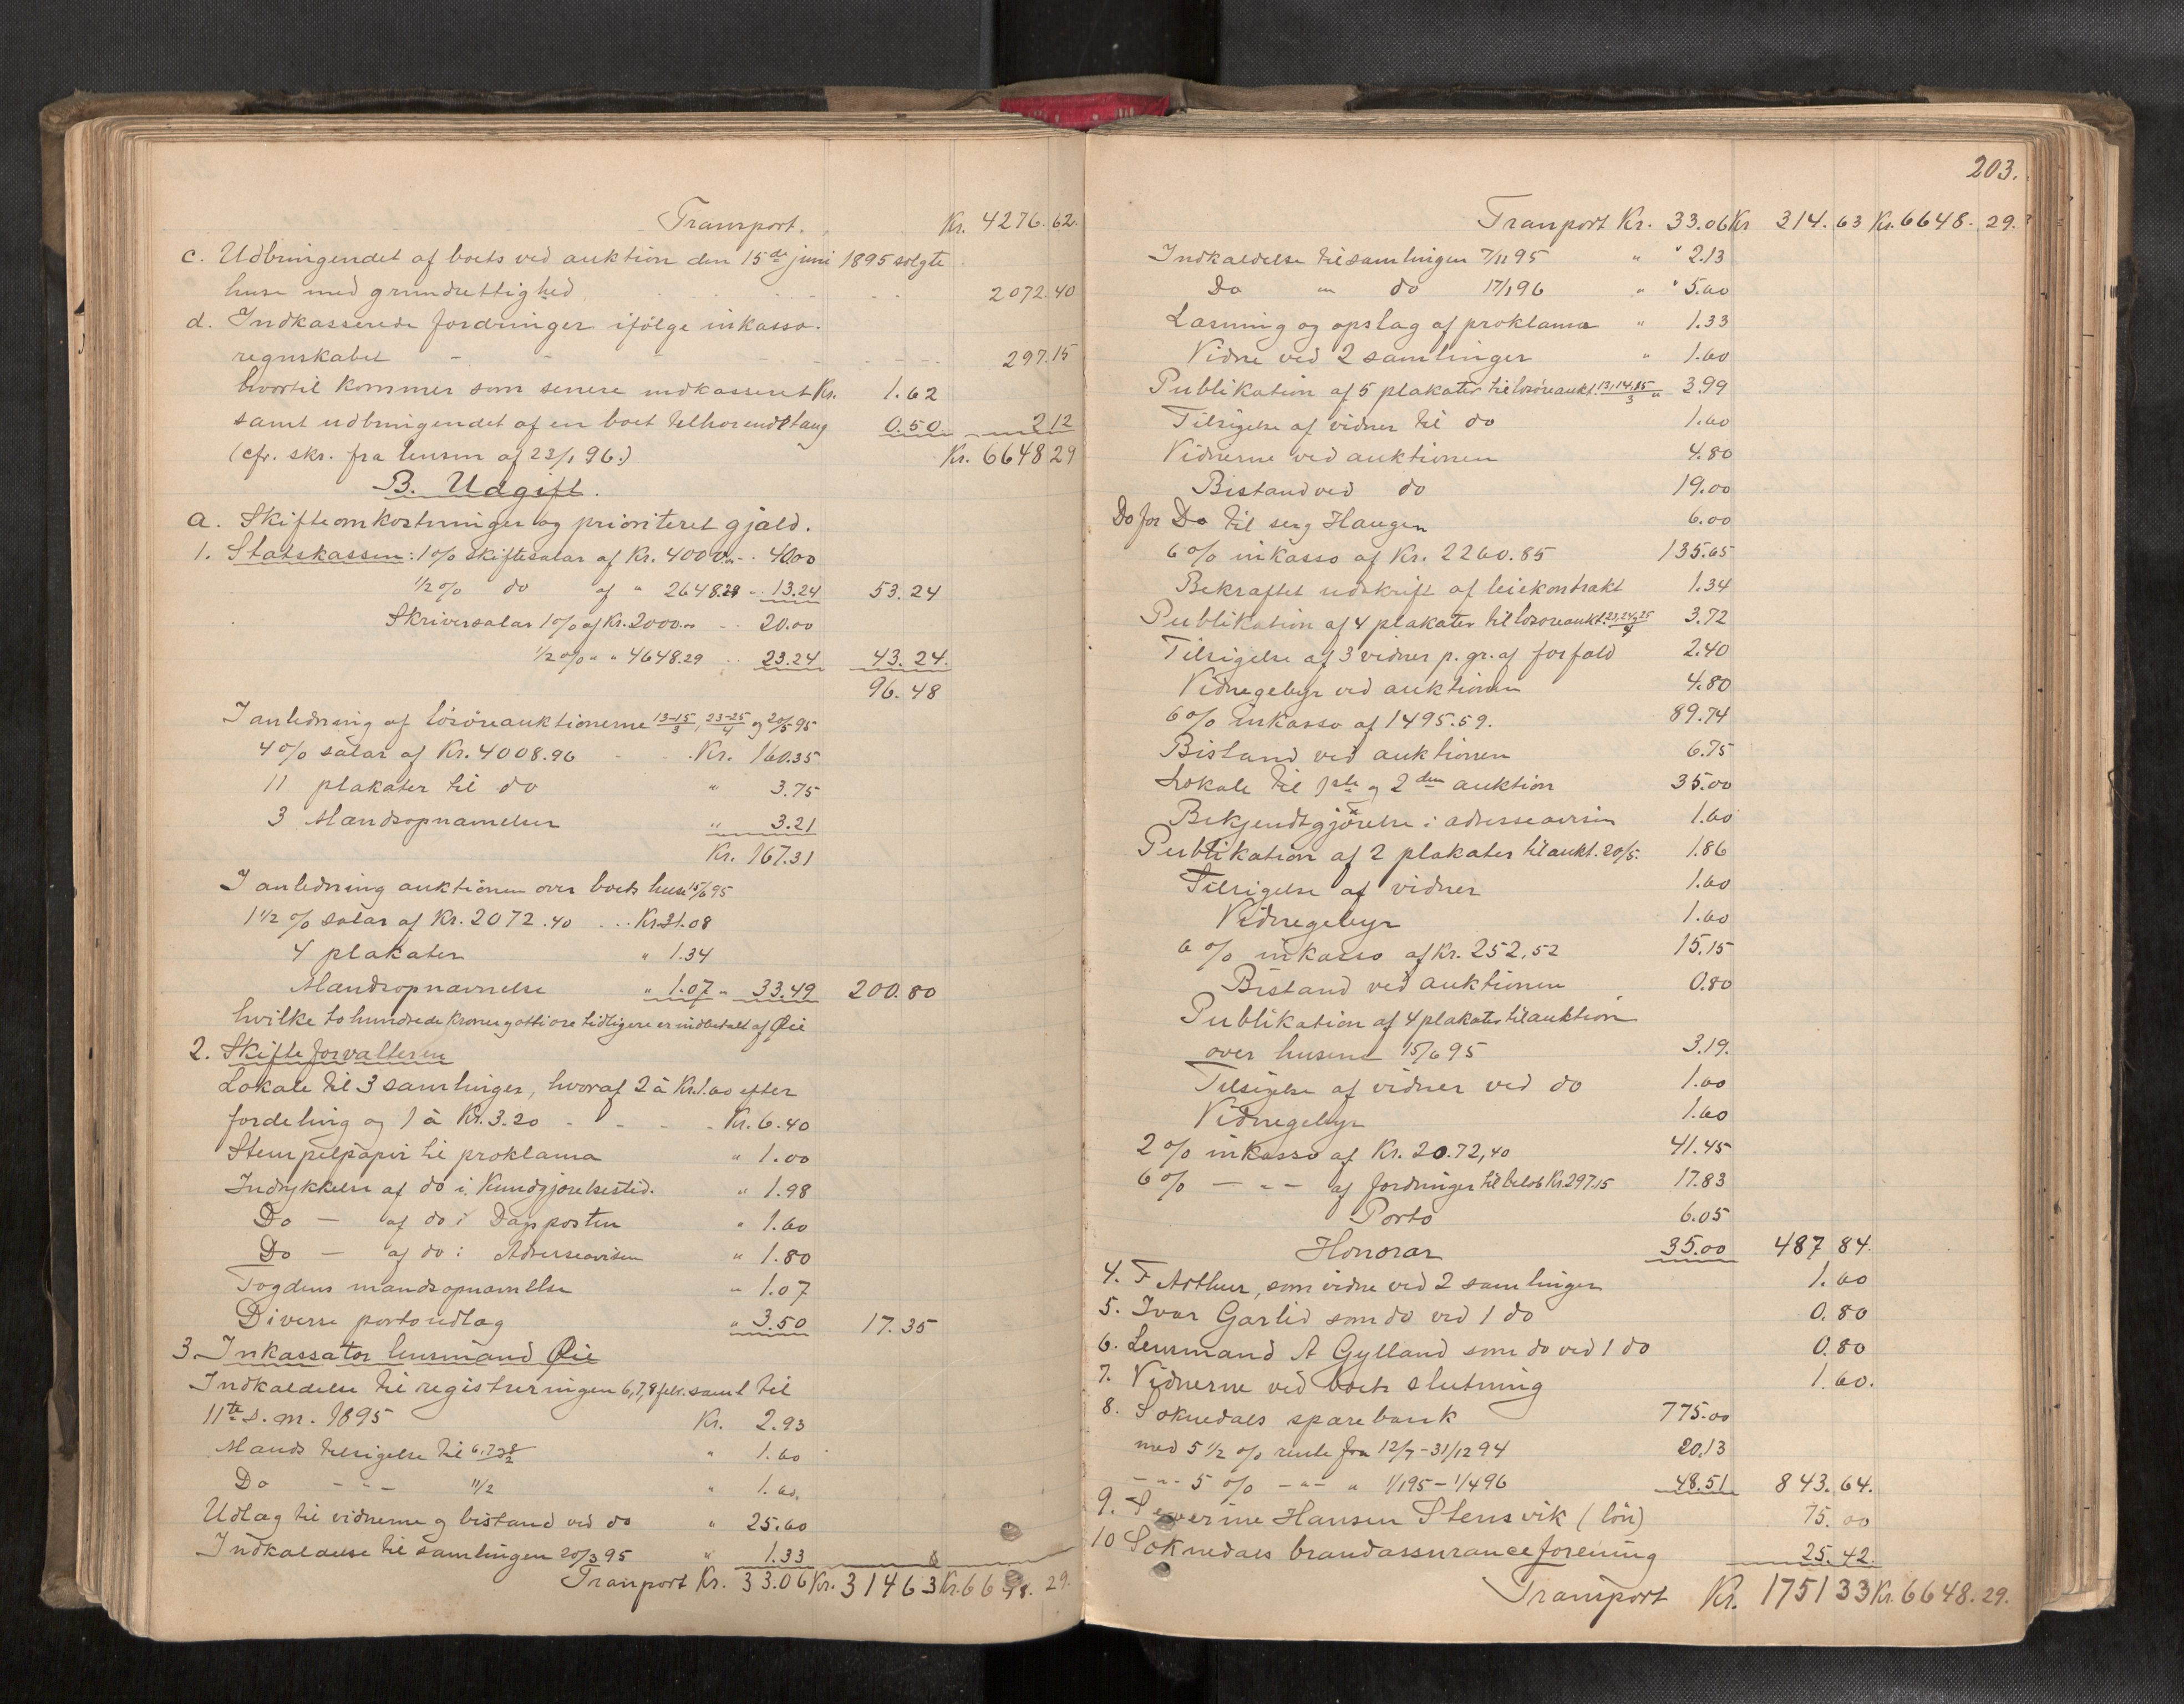 Transport. Kr. 4276.62.
c. Udbringendet af boets ved auktion den 15de juni 1895 solgte
huse med grundrettighed 2072.40
d. Indkasserede fordringer ifölge inkasso-
regnskabet - - - - - 297.15
hvortil kommer som senere indkasseret Kr. 1.62
samt udbringendet af en boet tilhorende 0.50 2 12
(cfr. skr. fra lensm af 23/1 96.) Kr. 6648 29
B. Udgift.
a. Skifteomkostninger og prioriteret gjæld.
1. Statskassen: 1% skiftesalær af Kr. 4000.- .. 40.00
1/2 % do af " 2648.29 .. 13.24 53.24
Skriversalær 1% af Kr. 2000.- .. 20.00
1/2 % " " 4648.29 .. 23.24 43.24.
96.48
I anledning af lösöreauktionerne 13-15/3, 23-25/4 og 20/5 95
4% salær af Kr. 4008.96 . . . Kr. 160.35
11 plakater til do " 3.75
3 Mandsopnævnelser " 3.21
Kr. 167.31
I anledning auktionen over boets huse 15/6 95
1 1/2 % salær af Kr. 2072.40 ... Kr. 31.08
4 plakater " 1.34
Mandsopnævnelse " 1.07 " 33.49 200.80
hvilke to hundrede kroner og otti öre tidligere er indbetalt af Øie
2. Skifteforvalteren
Lokale til 3 samlinger, hvoraf 2 à Kr. 1.60 efter
fordeling og 1 à Kr. 3.20 - - - - Kr. 6.40
Stempelpapir til proklama " 1.00
Indrykkelse af do i Kundgjörelsestid. " 1.98
Do - af do i Dagsposten " 1.60
Do - af do i Adresseavisen " 1.80
Fogdens mandsopnævnelse " 1.07
Diverse portoudlæg " 3.50 17.35
3. Inkassator lensmand Øie
Indkaldelse til registreringen 6,7,8 febr. samt til
11te s. m. 1895 Kr. 2.93
Mands tilsigelse til 6,7 og 8/2 " 1.60
Do - " - 11/2 " 1.60.
Udlæg til vidnerne og bistand ved do " 25.60
Indkaldelse til samlingen 20/3 95 " 1.33
Tranport Kr. 33.06 Kr. 314 63 Kr. 6648. 29.
203.
Tranport Kr. 33.06 Kr 314.63 Kr. 6648. 29.
Indkaldelse til samlingen 7/11 95 " " 2.13
Do " do 17/1 96 " " 5.60
Læsning og opslag af proklama " 1.33
Vidne ved 2 samlinger " 1.60
Publikation af 5 plakater til lösöreaukt. 13,14,15/3 " 3.99
Tilsigelse af vidner til do 1.60
Vidnerne ved auktionen 4.80
Bistand ved do 19.00
Do for Do til serg Haugen 6.00
6% inkasso af Kr. 2260.85 135.65
Bekræftet udskrift af leiekontrakt 1.34
Publikation af 4 plakater til lösöreaukt. 23,24,25/4 3.72
Tilsigelse af 3 vidner p. gr. af forfald 2.40
Vidnegebyr ved auktionen 4.80
6% inkasso af 1495.59. 89.74
Bistand ved auktionen 6.75
Lokale til 1ste og 2den auktion 35.00
Bekjendtgjörelse i adresseavisen 1.60
Publikation af 2 plakater til aukt. 20/5. 1.86
Tilsigelse af vidner 1.60
Vidnegebyr 1.60
6% inkasso af Kr. 252,52 15.15
Bistand ved auktionen 0.80
Publikation af 4 plakater til auktion
over husene 15/6 95 3.19.
Tilsigelse af vidner ved do 1.60
Vidnegebyr 1.60
2% inkasso af Kr. 2072,40 41.45
6% - " - af fordringer til belöb Kr. 297.15 17.83
Porto 6.05
Honorar 35.00 487 84.
4. F Asthuer, som vidne ved 2 samlinger 1.60
5. Ivar Garlid som do ved 1 do 0.80
6. Lensmand A Gylland som do ved 1 do 0.80
7. Vidnerne ved boets slutning 1.60.
8. Soknedals sparebank 775.00
med 5 1/2 % rente fra 12/7 - 31/12 94 20.13
- " - 5 % - " - " 1/1 95 - 1/4 96 48.51 843.64.
9. Severine Hansen Stensvik (lön) 75.00
10 Soknedals brandassuranceforening 25.42.
Transport Kr. 1751 33 Kr. 6648.29.